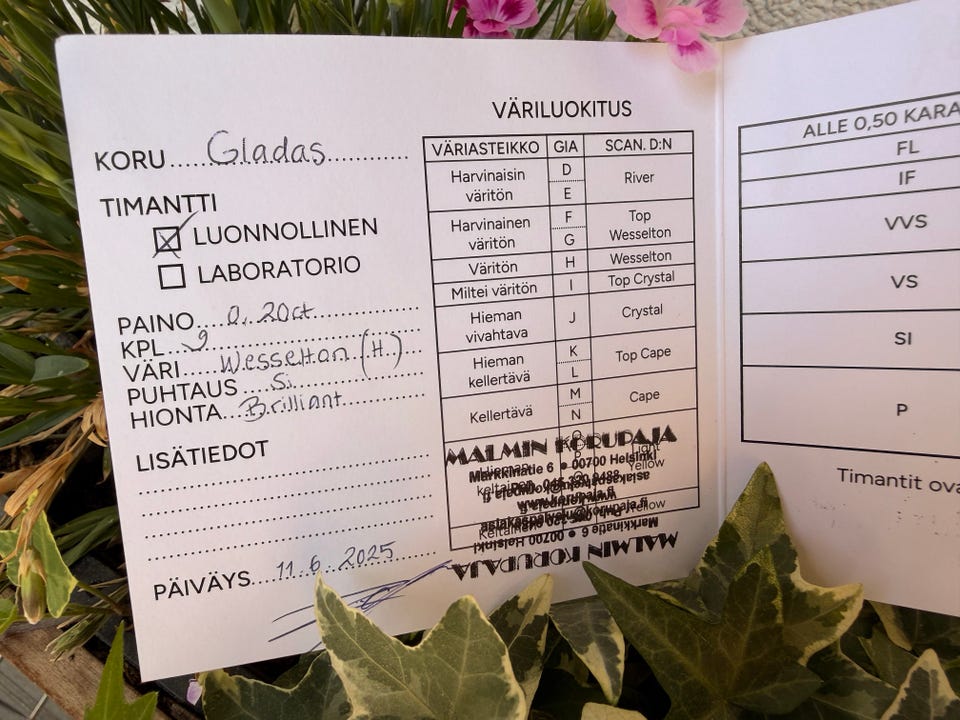 KORU Gladas
TIMANTTI
☒ LUONNOLLINEN
☐ LABORATORIO
PAINO 0.20ct
KPL 9
VÄRI Wesselton (H.)
PUHTAUS Si
HIONTA Brilliant
LISÄTIEDOT
PÄIVÄYS 11.6.2025
VÄRILUOKITUS
VÄRIASTEIKKO GIA SCAN. D:N
Harvinaisin väritön D E River
Harvinainen väritön F G Top Wesselton
Väritön H Wesselton
Miltei väritön I Top Crystal
Hieman vivahtava J Crystal
Hieman kellertävä K L Top Cape
Kellertävä M N Cape
Hieman keltainen O P Light Yellow
Keltainen Yellow
MALMIN KORUPAJA
Markkinatie 6 • 00700 Helsinki
www.korupaja.fi
asiakaspalvelu@korupaja.fi
Markkinatie 6 • 00700 Helsinki
MALMIN KORUPAJA
ALLE 0,50 KARA
FL
IF
VVS
VS
SI
P
Timantit ova